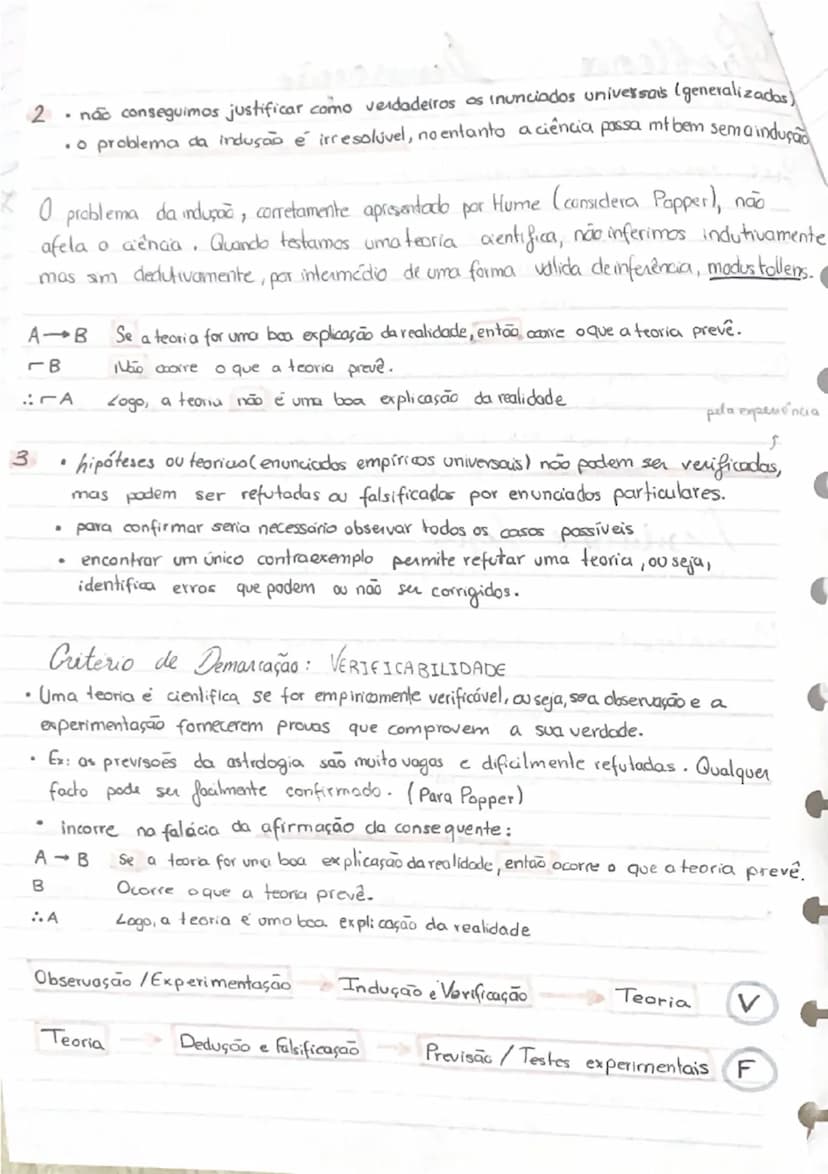 2 • não conseguimos justificar como verdadeiros os inunciados universais (generalizados)
• o problema da indução é irresolúvel, no entanto a ciência passa mt bem sem a indução
O problema da indução, corretamente apresentado por Hume (considera Popper), não
afeta a ciência. Quando testamos uma teoria científica, não inferimos indutivamente
mas sim dedutivamente, por intermédio de uma forma válida de inferência, modus tollens.
A → B Se a teoria for uma boa explicação da realidade, então ocorre o que a teoria prevê.
¬ B Não ocorre o que a teoria prevê.
∴ ¬ A Logo, a teoria não é uma boa explicação da realidade
pela experiência
3 • hipóteses ou teorias (enunciados empíricos universais) não podem ser verificadas,
mas podem ser refutadas ou falsificadas por enunciados particulares.
• para confirmar seria necessário observar todos os casos possíveis
• encontrar um único contraexemplo permite refutar uma teoria, ou seja,
identifica erros que podem ou não ser corrigidos.
Critério de Demarcação: VERIFICABILIDADE
• Uma teoria é científica se for empiricamente verificável, ou seja, se a observação e a
experimentação fornecerem provas que comprovem a sua verdade.
• Ex: as previsões da astrologia são muito vagas e dificilmente refutadas. Qualquer
facto pode ser facilmente confirmado. (Para Popper)
• incorre na falácia da afirmação da consequente:
A → B Se a teoria for uma boa explicação da realidade, então ocorre o que a teoria prevê.
B Ocorre o que a teoria prevê.
∴ A Logo, a teoria é uma boa explicação da realidade
Observação / Experimentação → Indução e Verificação → Teoria V
Teoria → Dedução e Falsificação → Previsão / Testes experimentais F